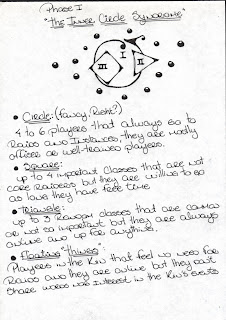 Phase I
"The Inner Circle Syndrome"
I
III
II
• Circle: (Funny, Right?)
4 to 6 Players that always go to
Raids and Instances, they are mostly
officers or well-trained players.
• Square:
up to 4 important classes that are not
core Raiders but they are willing to go
as long they have free time.
• Triangle:
up to 3 Random classes that are common
or not so important but they are always
online and up for anything.
• Floating "things":
Players in the Kin that feel no need for
Raids and they are online but they cant
share words nor interest in the Kin's events